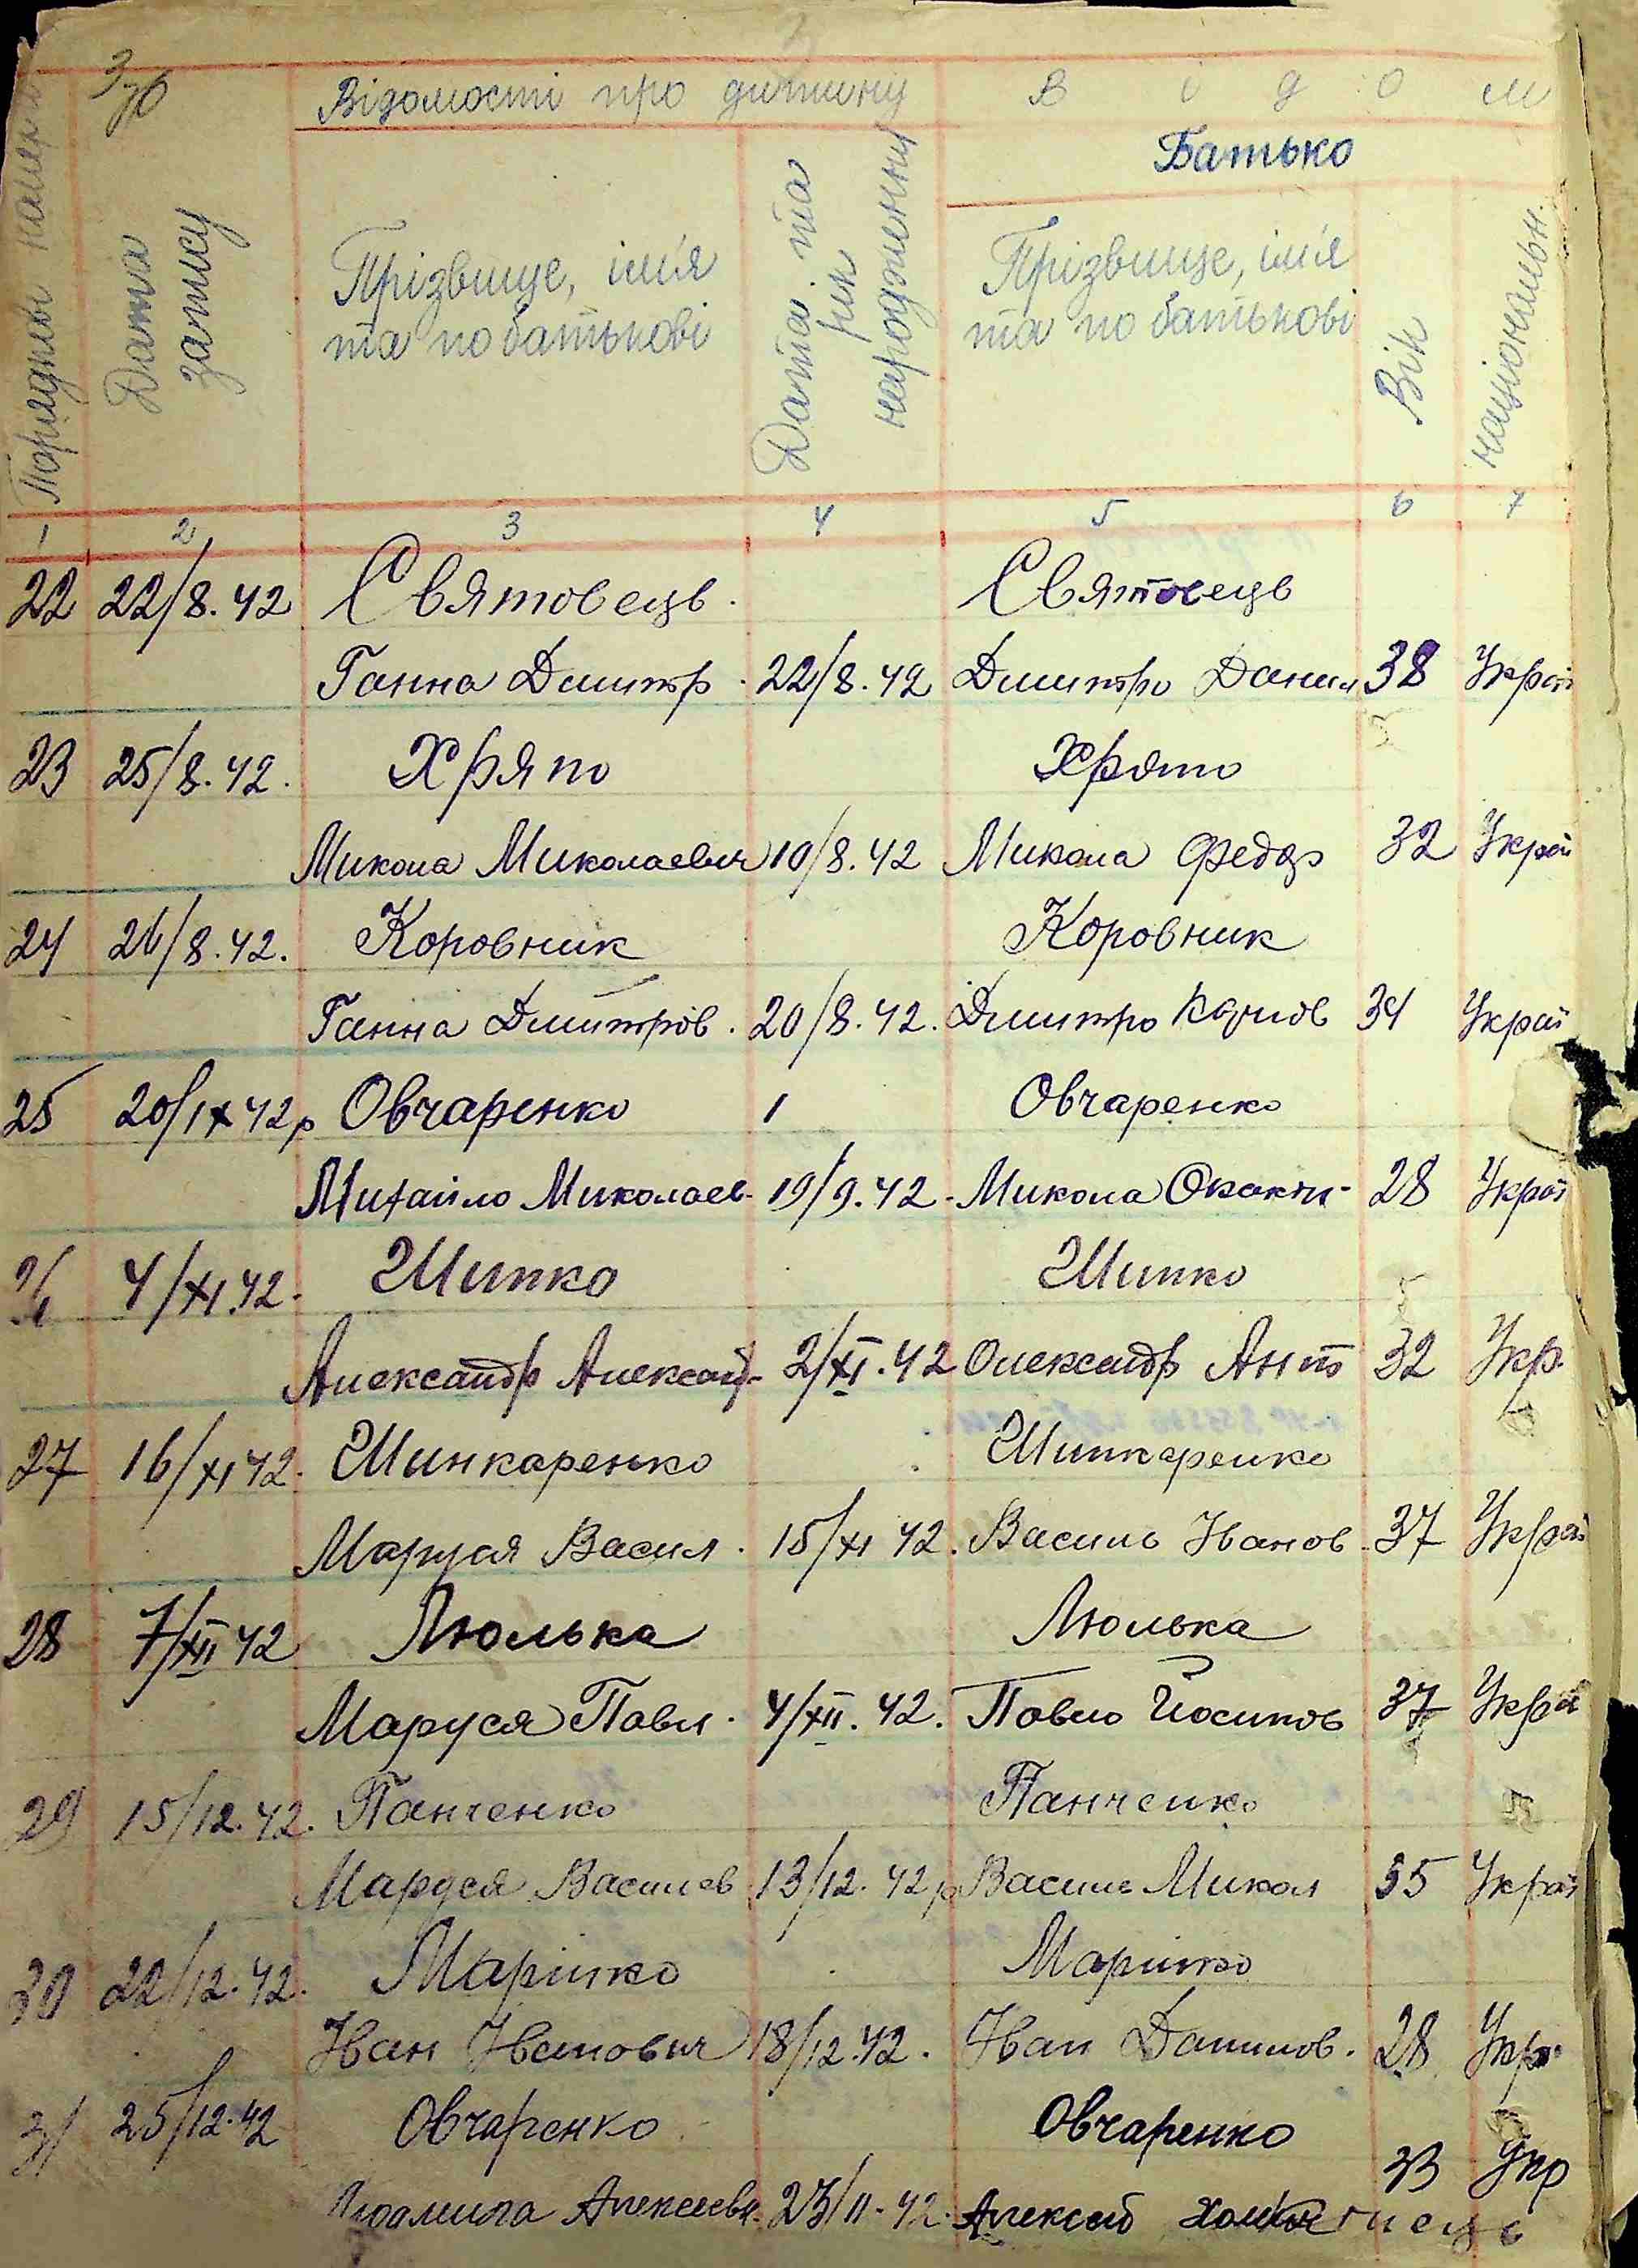 Зуб
Відомості про дитину В і д о м
Батько
Порядков номер
Дата запису
Прізвище, ім'я та по батькові
Дата та рік народження
Прізвище, ім'я та по батькові
Вік
національн.
1 2 3 4 5 6 7
22 22/8.42 Святовець. Святовець
Ганна Дмитр. 22/8.42 Дмитро Данил 38 Украї
23 25/8.42. Хряпо Хряпо
Микола Миколаевич 10/8.42 Микола Федор 32 Украї
24 26/8.42. Коровник Коровник
Ганна Дмитров. 20/8.42. Дмитро 34 Украї
25 20/IX 42р Овчаренко 1 Овчаренко
Михайло Миколаев. 19/9.42. Микола 28 Украї
26 4/XI.42. Шипко Шипко
Александр Александ. 2/XI.42 Олександр Ант 32 Укр.
27 16/XI 42. Шинкаренко Шинкаренко
Маруся Васил. 15/XI 42. Василь Іванов. 37 Украї
28 7/XII 42 Люлька Люлька
Маруся Павл. 4/XII.42. Павло Йосипов 37 Украї
29 15/12.42. Панченко Панченко
Маруся Василев 13/12.42р Василь Микол 35 Украї
30 22/12.42.
Іван Іванович 18/12.42. Іван Данилов. 28 Укр.
31 25/12.42 Овчаренко Овчаренко
Людмила Алексеевн. 23/11.42. Алексей 33 Укр